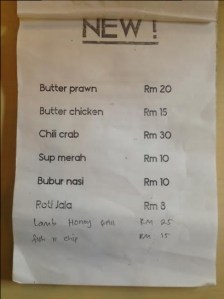 NEW !
Butter prawn Rm 20
Butter chicken Rm 15
Chili crab Rm 30
Sup merah Rm 10
Bubur nasi Rm 10
Roti Jala Rm 8
Lamb Honey RM 25
fish n chip RM 15